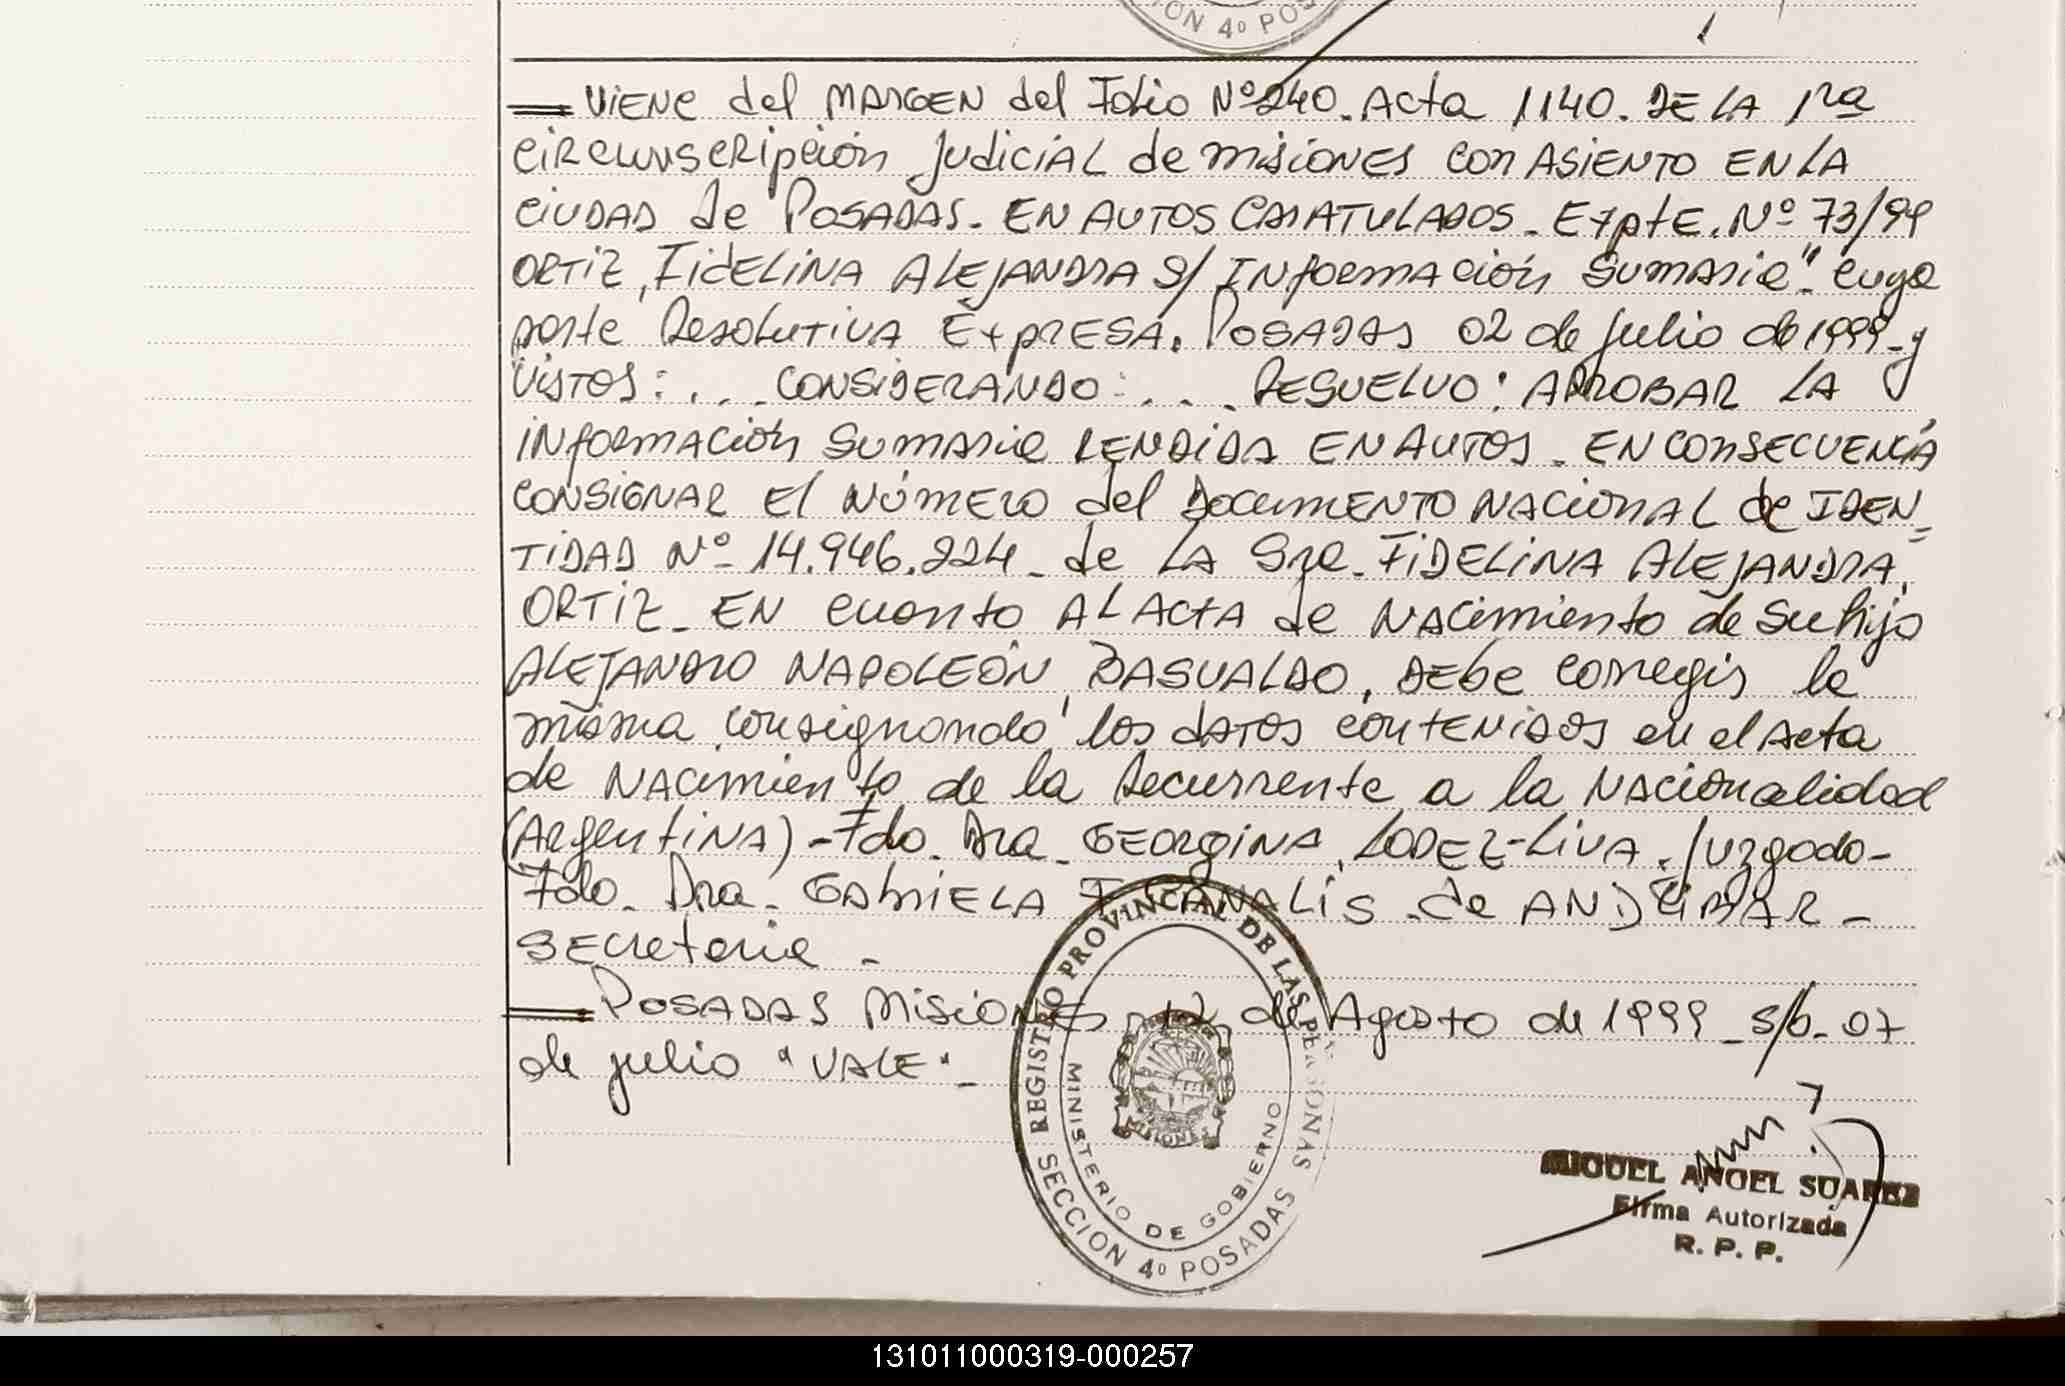 CION 4º POS
VIENE del MARGEN del Folio Nº 240. Acta 1140. DE LA 1ra
circunscripción Judicial de misiones con ASIENTO EN LA
CIUDAD de POSADAS. EN AUTOS CARATULADOS. Expte. Nº 73/99
ORTIZ, FIDELINA ALEJANDRA S/ INformación Sumaria". cuya
parte Resolutiva EXpRESA. POSADAS 02 de julio de 1999.- y
VISTOS: ... CONSIDERANDO: ... RESUELVO: APROBAR LA
INformación SumARia RENDIDA EN AUTOS. EN CONSECUENCIA
CONSIGNAR El NÚMERO del DOCUMENTO NACIONAL de IDEN=
TIDAD Nº 14.946.224 - de LA Sra. FIDELINA ALEJANDRA,
ORTIZ - EN cuanto AL ACTA de NACimiento de su hijo
ALEJANDRO NAPOLEÓN, BASUALDO, DEBE corregir la
misma consignando los DATOS contENIDOS en el Acta
de NACimiento de la recurrente a la NACionalidad
(ArgentiNA) - Fdo. Dra. GEORGINA, LOPEZ-LIVA. Juzgado-
Fdo. Dra. GABRIELA F. CANALIS de ANDEIMAR -
SECretaria -
POSADAS MisioNES 12 de Agosto de 1999 - S/b. 07
de julio "VALE" -
REGISTRO PROVINCIAL DE LAS PERSONAS
MINISTERIO DE GOBIERNO
MISIONES
SECCION 4º POSADAS
MIGUEL ANGEL SUAREZ
Firma Autorizada
R. P. P.
131011000319-000257